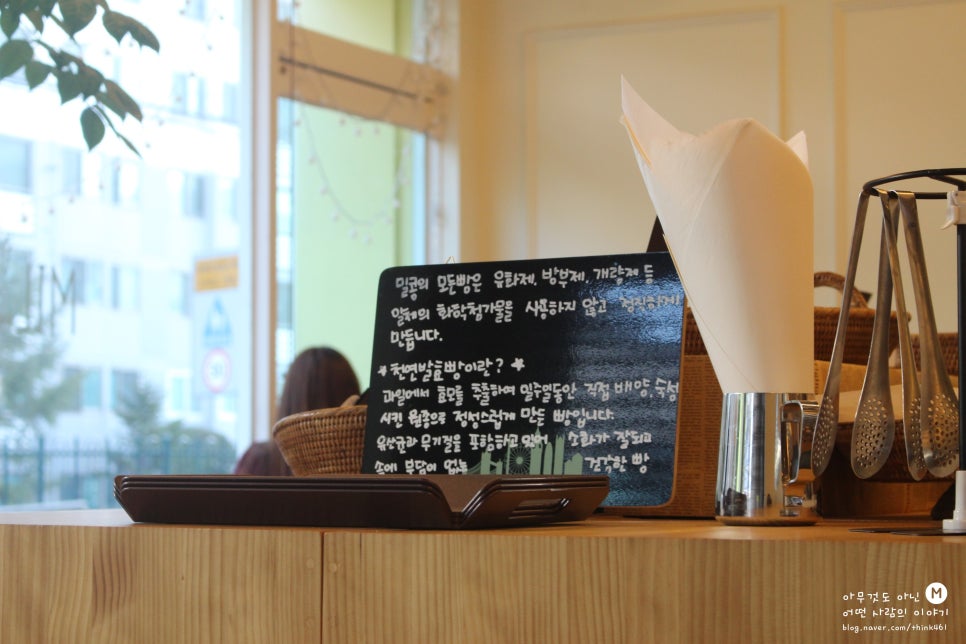 밀콩의 모든빵은 유화제, 방부제, 개량제 등
일체의 화학첨가물을 사용하지 않고 정직하게
만듭니다.
*천연발효빵이란? *
과일에서 효모를 추출하여 일주일동안 직접 배양, 숙성
시킨 원종으로 정성스럽게 만든 빵입니다.
유산균과 무기질을 포함하고 있어 소화가 잘되고
속에 부담이 없는 건강한 빵
30
아무것도 아닌 M
어떤 사람의 이야기
blog.naver.com/think461